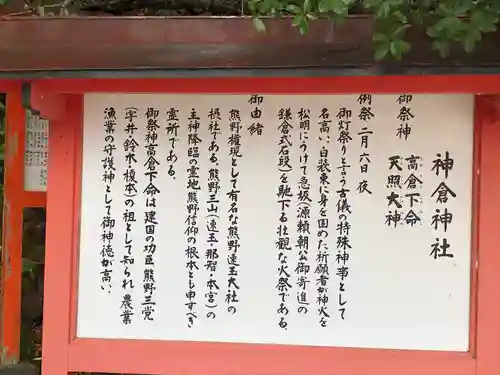 神倉神社
御祭神
高倉下命
天照大神
例祭 二月六日夜
御灯祭りと言う古儀の特殊神事として
名高い、白装束に身を固めた祈願者が神火を
松明にうけて急坂(源頼朝公御寄進の
鎌倉式石段)を馳下る壮観な火祭である。
御由緒
熊野権現として有名な熊野速玉大社の
摂社である。熊野三山(速玉・那智・本宮)の
主神降臨の霊地熊野信仰の根本とも申すべき
霊所である。
御祭神高倉下命は建国の功臣熊野三党
(宇井・鈴木・榎本)の祖として知られ農業
漁業の守護神として御神徳が高い。